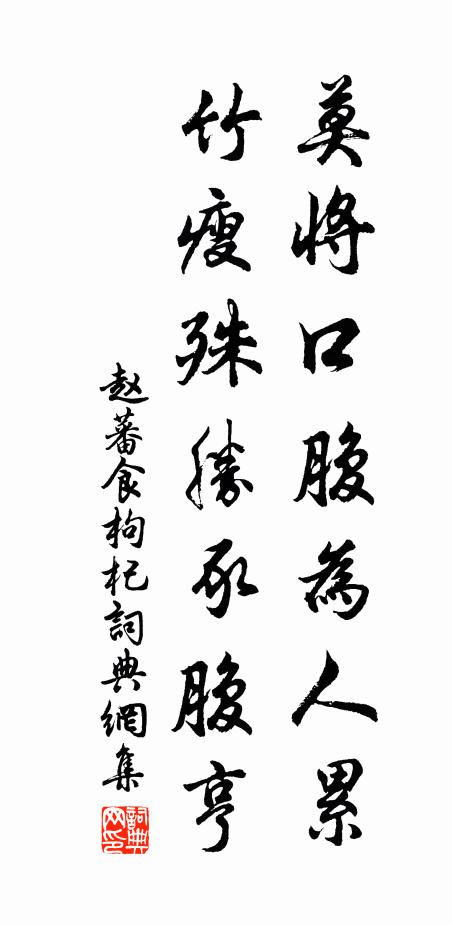 莫將口腹為人累
竹瘦殊勝豕腹亨
趙蕃食枸杞詞典網集
詞典網印